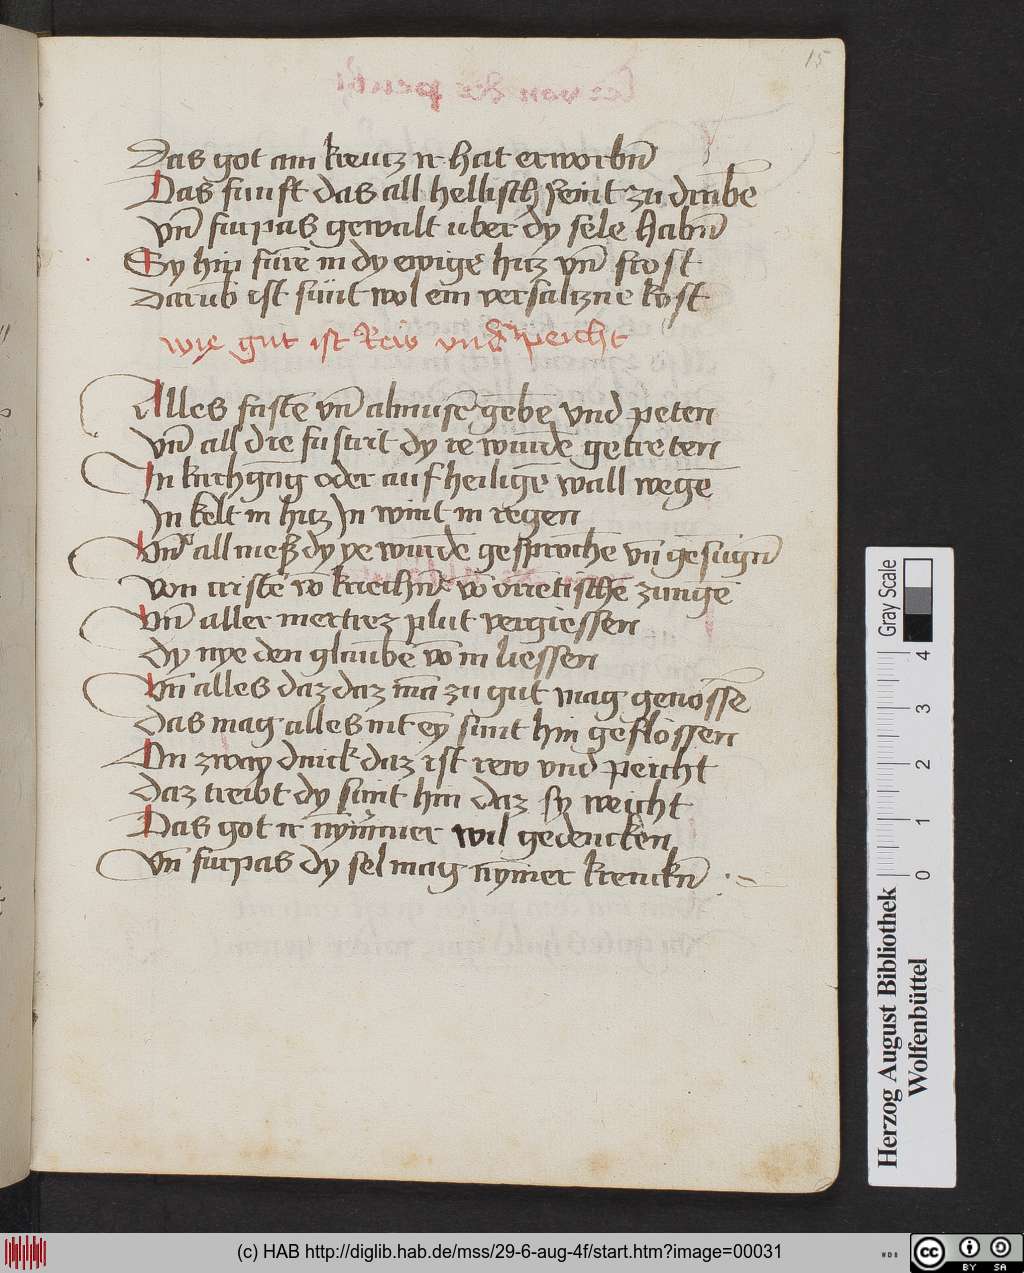 15
Das got am kreutz ir hat erworbn̄
Das funft das all hellisch veint zu
vn̄ furpas gewalt uber dy sele habn̄
Sy hin furē in dy ewige hitz vn̄ frost
Darūb ist sünt wol ein versaltzne kost
wie gut ist Rew vnd dy peicht
Alles fastē vn̄ almusē gebē vnd peten
vn̄ all die fustrit dy ie wurdē getreten
In kirchgāg oder auf heiligē wall wegē
In kelt in hitz In wint in regen
Vn̄ all meß dy ye wurdē gesprochē vn̄ gesūgn̄
von cristē vō kriechn̄ vō zunge
Vn̄ aller mertrer plut vergiessen
Dy nye den glaubē vō in liessen
Vn̄ alles daz daz mā zu gut mag genossē
Das mag alles nit eȳ sunt hin geflossen
An zway dinck daz ist rew vnd peicht
Daz treibt dy sunt hin daz sy weicht
Das got ir nȳmmer wil gedencken
Vn̄ furpas dy sel mag nȳmer krenckn̄
Herzog August Bibliothek
Wolfenbüttel
0 1 2 3 4
Gray Scale
(c) HAB http://diglib.hab.de/mss/29-6-aug-4f/start.htm?image=00031
WDB
cc BY SA